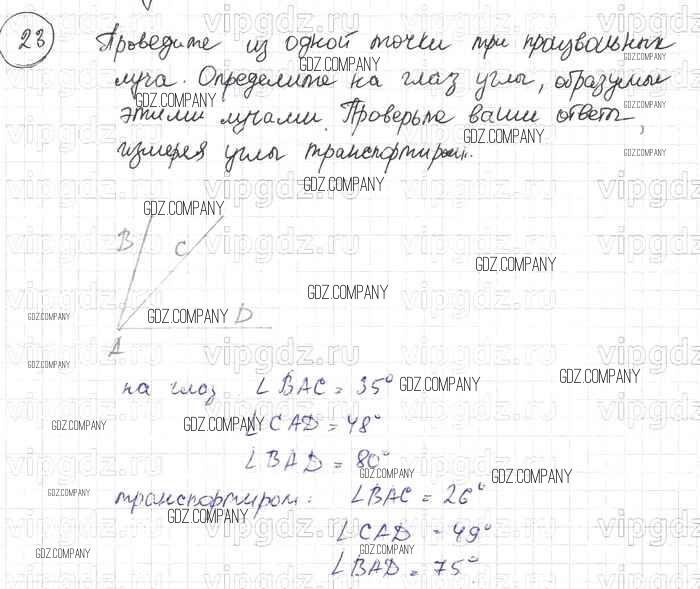 23 Проведите из одной точки три произвольных
луча. Определите на глаз углы, образуемые
этими лучами. Проверьте ваши ответы,
измеряя углы транспортиром.
B
C
D
A
на глаз ∠BAC = 35°
∠CAD = 48°
∠BAD = 80°
транспортиром: ∠BAC = 26°
∠CAD = 49°
∠BAD = 75°
GDZ.COMPANY
vipgdz.ru